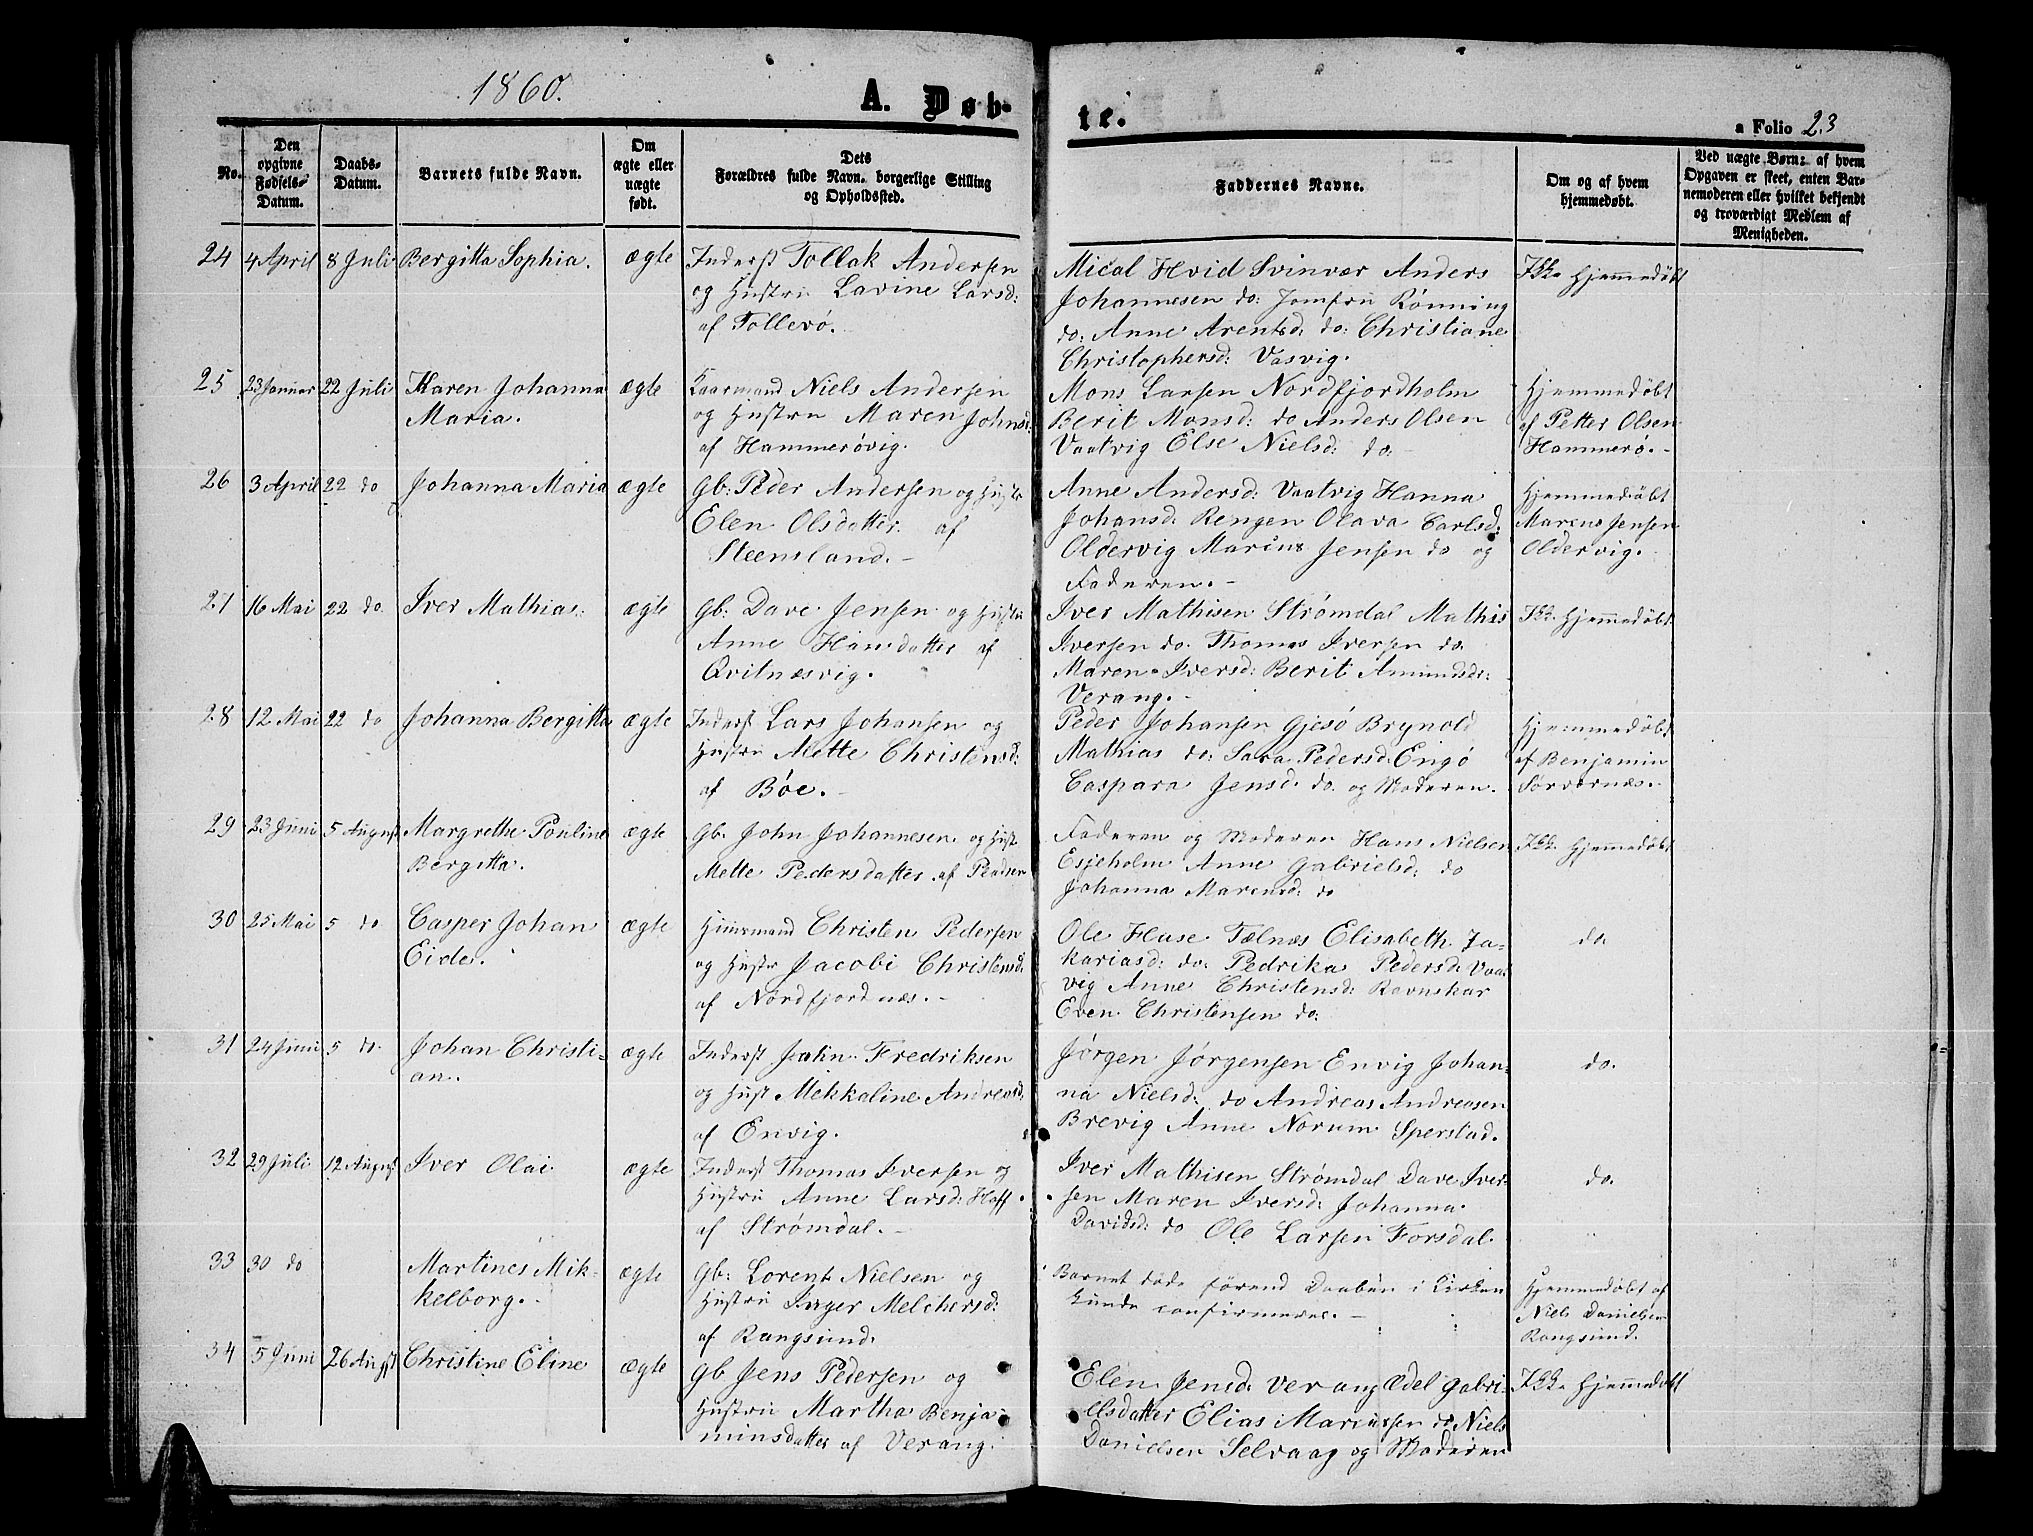 1860.
A. Døb-
te.
a Folio 23
No.
Den
opgivne
Fødsels-
Datum.
Daabs-
Datum.
Barnets fulde Navn.
Om
ægte eller
uægte
født.
Dets
Forældres fulde Navn, borgerlige Stilling
og Opholdssted.
Faddernes Navne.
Om og af hvem
hjemmedøbt.
Ved uægte Børn: af hvem
Opgaven er skeet, enten Bar-
nemoderen eller hvilket bekjendt
og troværdigt Medlem af
Menigheden.
24 4 April 8 Juli Bergitta Sophia. ægte
Inderst Tollak Andersen
og Hustru Lavine Larsd:
af Tollevø.
Mical Hvid Svinvær Anders
Johannesen do: Jomfru Rønning
do: Anne Arentsd: do: Christiane
Christophersd: Vasvig.
Ikke Hjemmedøbt
25 23 Januar 22 Juli Karen Johanna
Maria. ægte
Kaarmand Niels Andersen
og Hustru Maren Johnsd:
af Hammerøvig.
Mons Larsen Nordfjordholm
Berit Monsd: do Anders Olsen
Vaatvig Else Nielsd: do.
Hjemmedøbt
af Petter Olsen
Hammerø.-
26 3 April 22 do Johanna Maria ægte
Gb: Peder Andersen og Hustr
Elen Olsdatter af
Steensland.-
Anne Andersd: Vaatvig Hanna
Johansd: Rengen Olava Carlsd:
Oldervig Marius Jensen do og
Faderen.-
Hjemmedøbt
Marius Jensen
Oldervig.
27 16 Mai 22 do. Iver Mathias. ægte
Gb: Dave Jensen og Hustru
Anne Hansdatter af
Qvitnæsvig.
Iver Mathisen Strømdal Mathis
Iversen do. Thomas Iversen do.
Maren Iversd: Berit Amundsdr:
Verang.-
Ikke Hjemmedøbt
28 12 Mai 22 do Johanna Bergitta ægte
Inderst Lars Johansen og
Hustru Mette Christensd:
af Bøe.-
Peder Johansen Gjesø Brynold
Mathias do: Sara Pedersd: Engø
Caspara Jensd. do. og Moderen.
Hjemmedøbt
af Benjamin
Sørvernæs.-
29 23 Juni 5 August Margrethe Pouline
Bergitta. ægte
Gb. John Johannesen og Hust
Mette Pedersdatter af
Faderen og Moderen Hans Nielsen
Esjeholm Anne Gabrielsd: do
Johanna Marensd: do
Ikke Hjemmedøbt
30 25 Mai 5 do Casper Johan
Eider. ægte
Huusmand Christen Pedersen
og Hustr Jacobi Christensd:
af Nordfjordnæs.-
Ole Huse Tælnæs Elisabeth Za-
kariasd: do. Pedrika Pedersd: Vaat
vig Anne Christensd: Ravnskar
Even Christensen do:
do.
31 24 Juni 5 do. Johan Christi-
an. ægte
Inderst John Fredriksen
og Hust Mekkaline Andreasd.
af Envig.
Jørgen Jørgensen Envig Johan-
na Nielsd: do Andreas Andreasen
Brevig Anne Norum Sperstad.
do.
32 29 Juli 12 August Iver Olai ægte
Inderst Thomas Iversen og
Hustru Anne Larsd: Hoff
af Strømdal.-
Iver Mathisen Strømdal Dave Iver-
sen Maren Iversd: Johanna
Davidsd: do Ole Larsen Forsdal.
do.
33 30 do Martines Mik-
kelborg.- ægte
Gb: Lorents Nielsen og
Hustru Inger Melchersd:
af Rangsund.
Barnet døde førend Daaben i Kirken
kunde confirmeres.-
Hjemmedøbt af
Niels Danielsen
Rangsund.
34 5 Juni 26 August Christine Eline ægte
Gb Jens Pedersen og
Hustru Martha Benja-
minsdatter af Verang.
Elen Jensd: Verang Ædel Gabri-
elsdatter Elias Mariussen do Niels
Danielsen Selvaag og Moderen
Ikke Hjemmedøbt